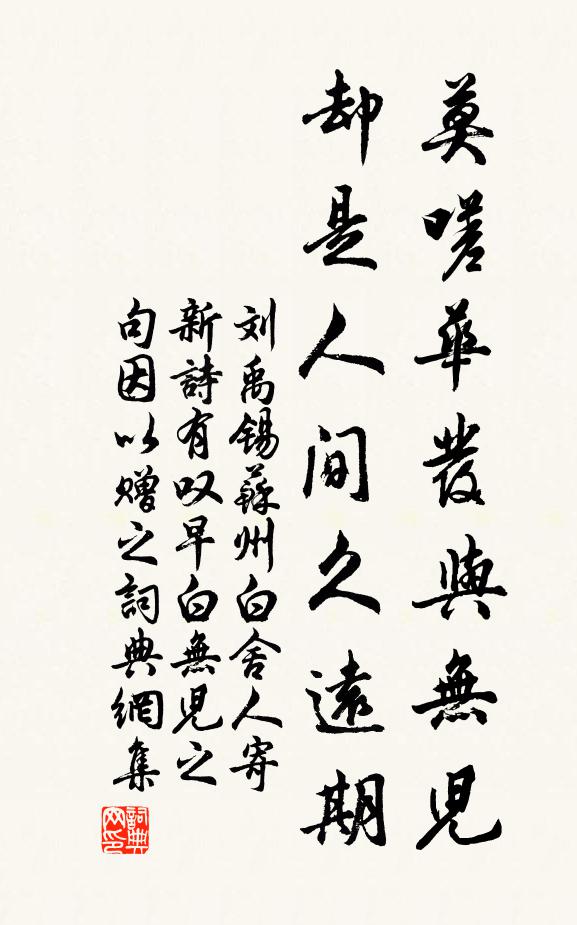 莫嗟華發與無兒
却是人間久遠期
刘禹锡蘇州白舍人寄
新詩有叹早白無児之
句因以赠之詞典網集
詞典网印